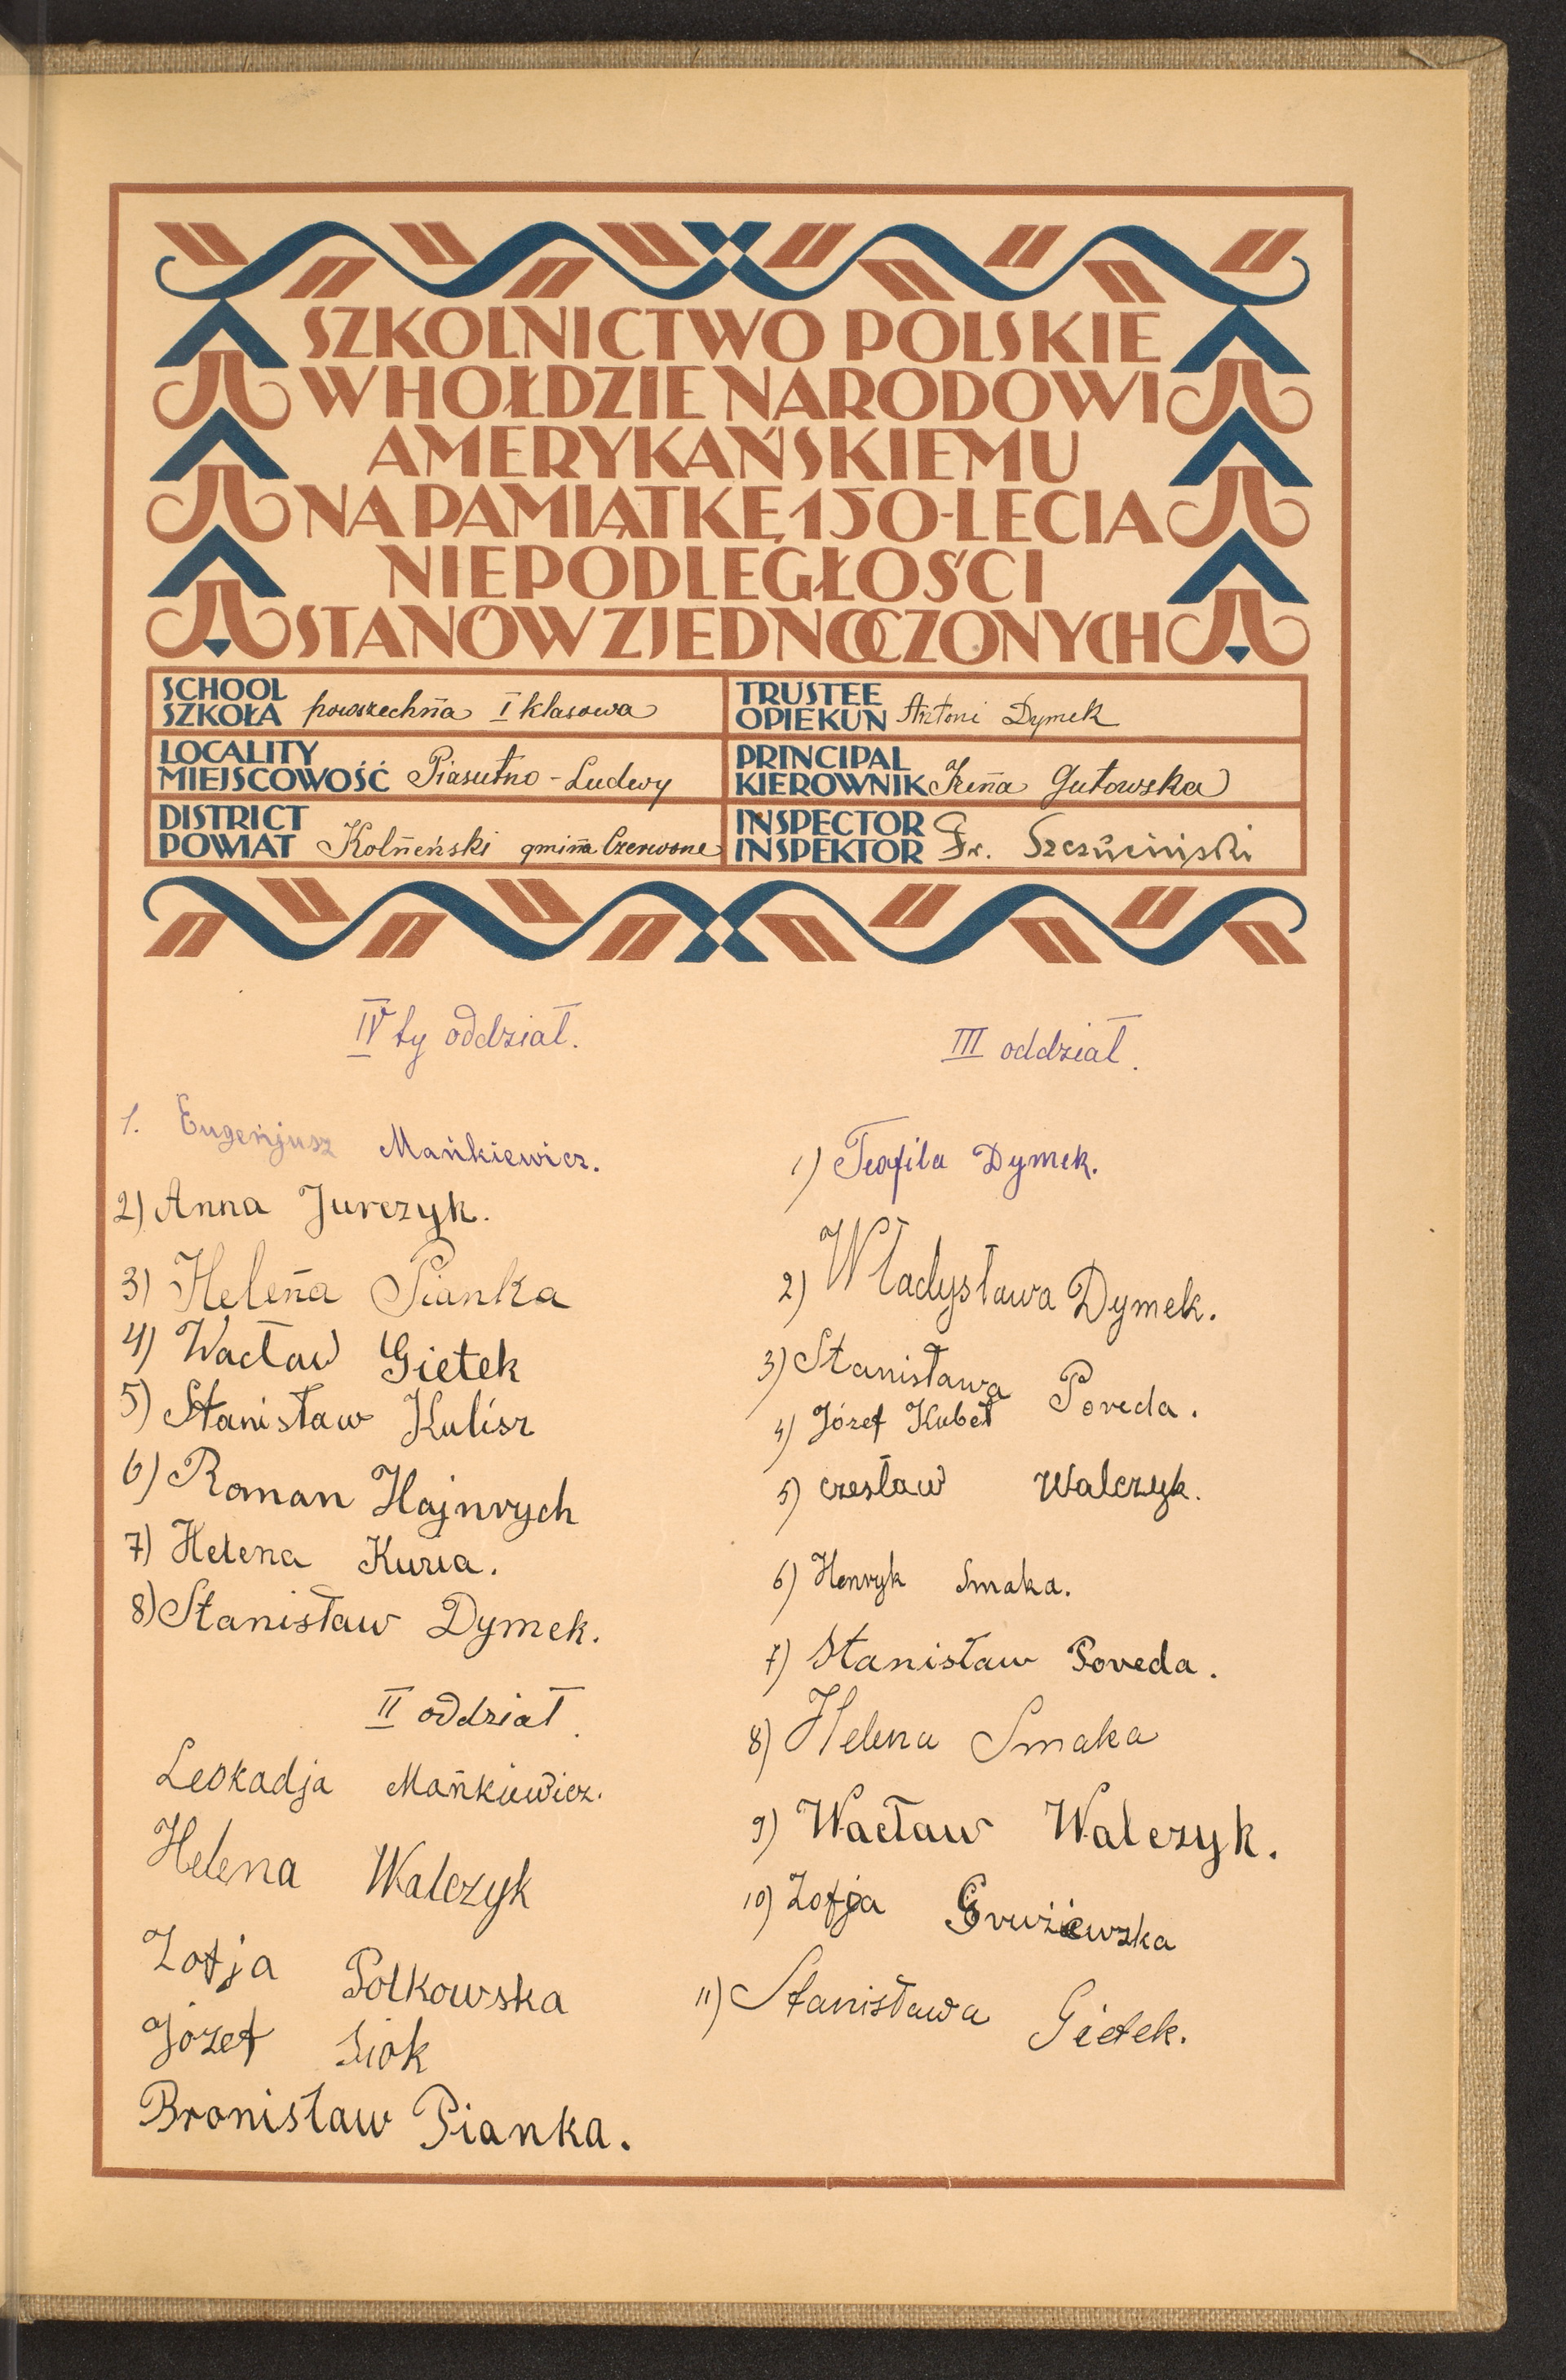 SZKOLNICTWO POLSKIE
W HOŁDZIE NARODOWI
AMERYKAŃSKIEMU
NA PAMIĄTKĘ 150-LECIA
NIEPODLEGŁOŚCI
STANÓW ZJEDNOCZONYCH
SCHOOL
SZKOŁA powszechna I klasowa
TRUSTEE
OPIEKUN Antoni Dymek
LOCALITY
MIEJSCOWOŚĆ Piasutno - Ludwy
PRINCIPAL
KIEROWNIK Irena Gutowska
DISTRICT
POWIAT Kolneński gmina Czerwone
INSPECTOR
INSPEKTOR Fr.
IV ty oddział.
1. Eugenjusz Mańkiewicz.
2) Anna Jurczyk.
3) Helena Pianka
4) Wacław Gietek
5) Stanisław Kulisz
6) Roman Hajnrych
7) Helena
8) Stanisław Dymek.
II oddział.
Leokadja Mańkiewicz.
Helena Walczyk
Zofja Połkowska
Józef
Bronisław Pianka.
III oddział.
1) Teofila Dymek.
2) Władysława Dymek.
3) Stanisława Poreda.
4) Józef Kubeł
5) Czesław Walczyk.
6) Henryk Smaka.
7) Stanisław Poreda.
8) Helena Smaka
9) Wacław Walczyk.
10) Zofja
11) Stanisława Gietek.